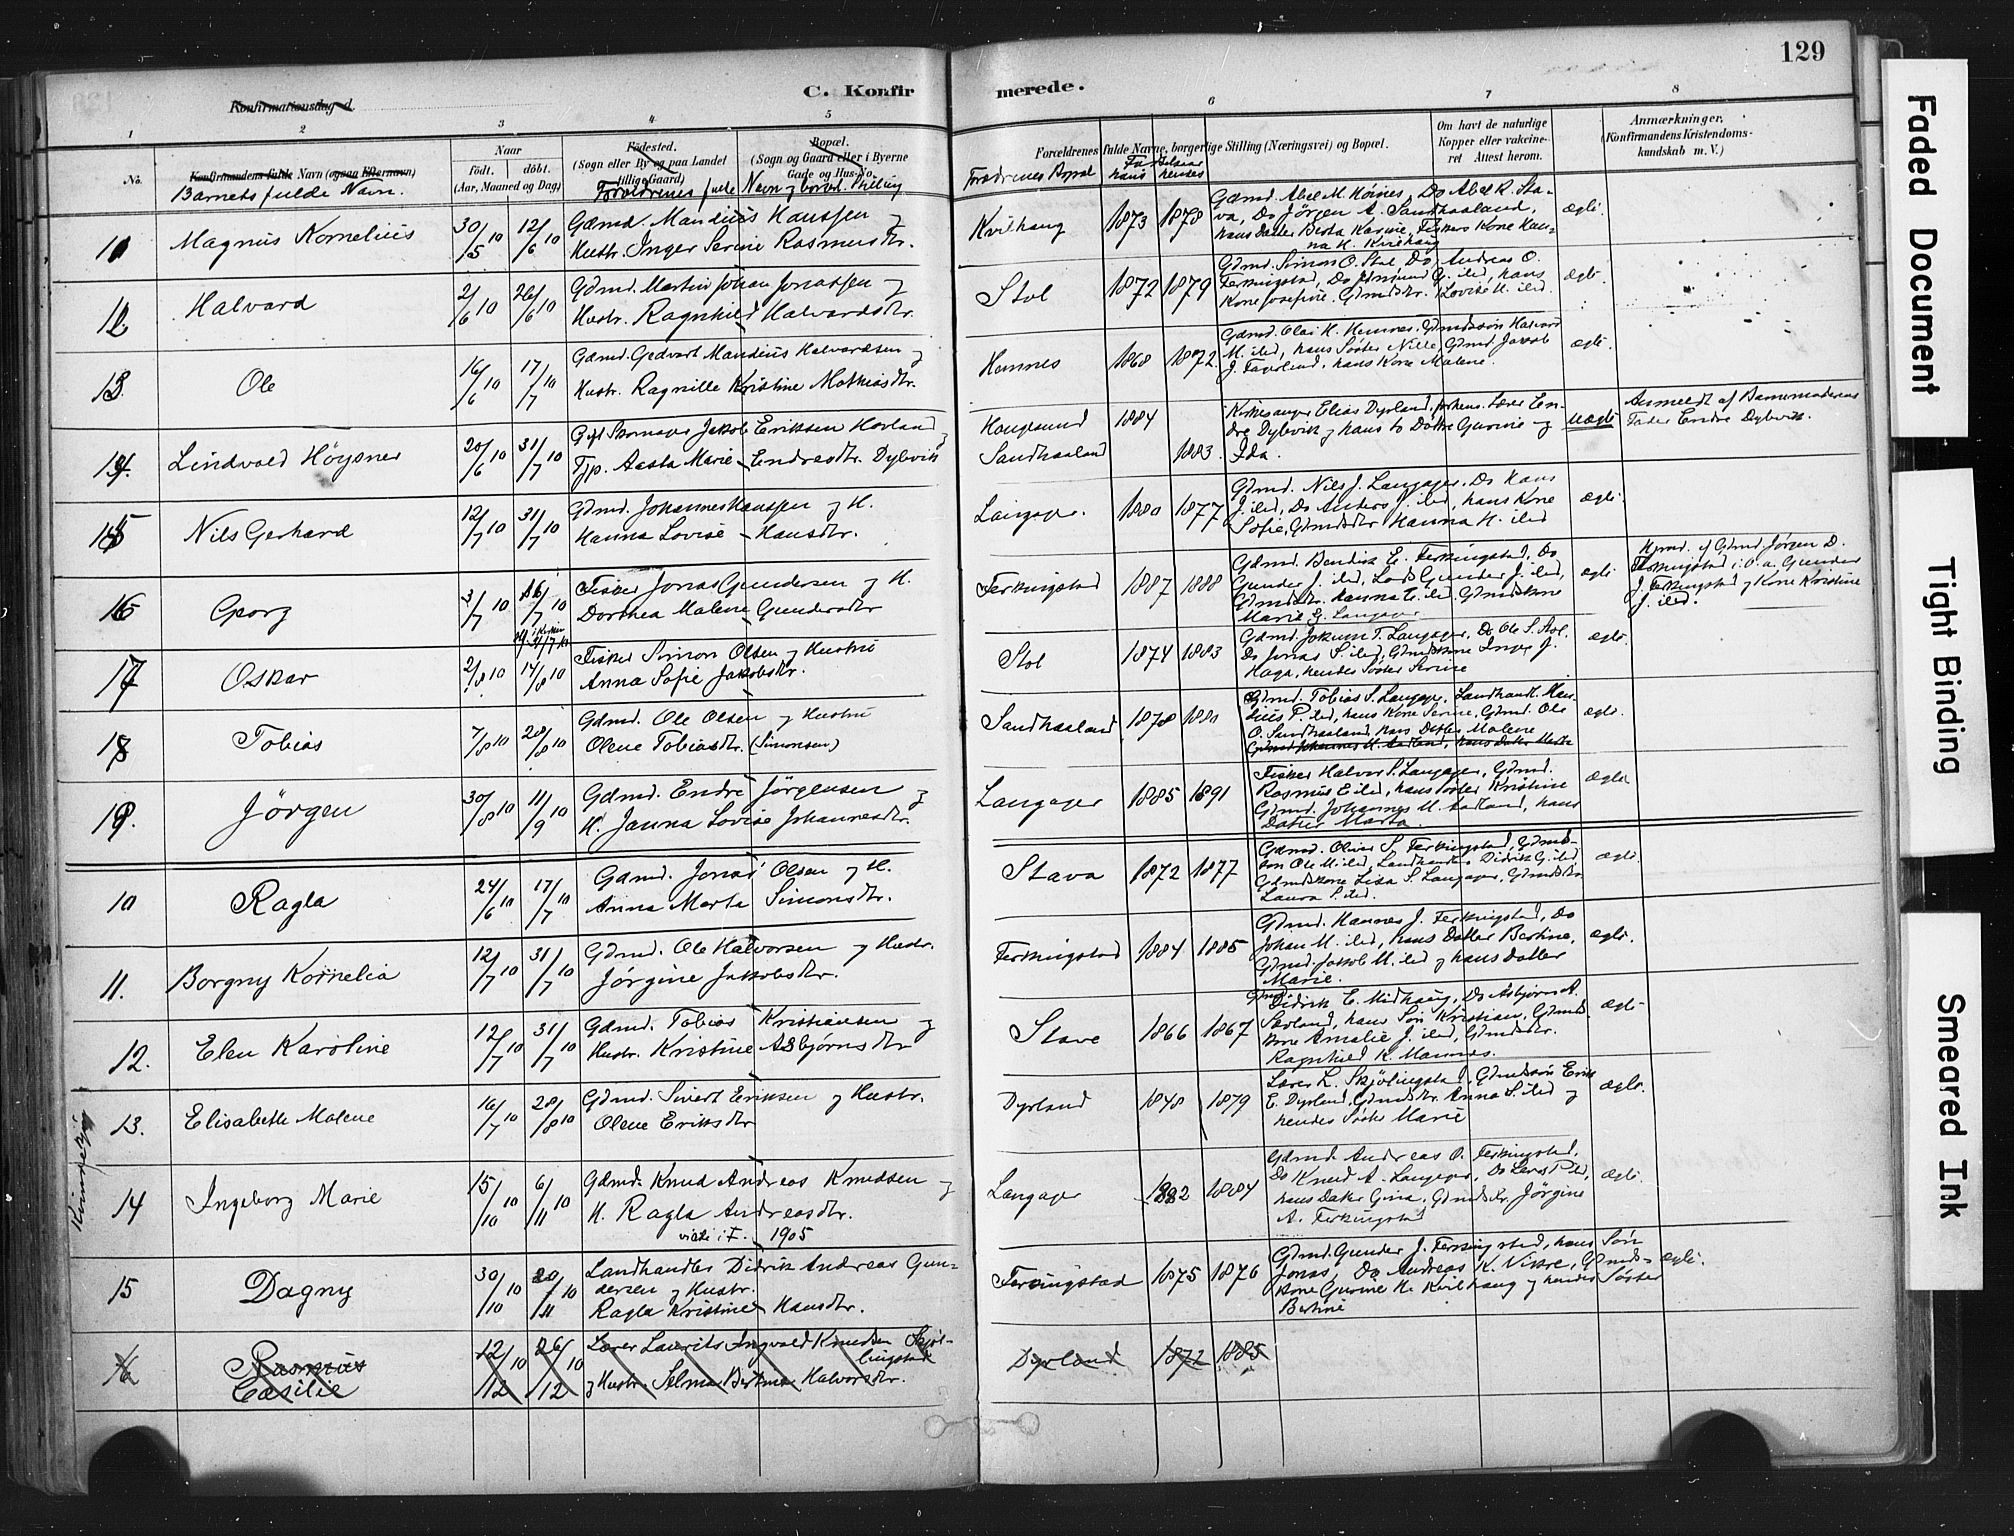 129
C. Konfirmerede.
Konfirmationsdag d.
1 2 3 4 5 6 7 8
No.
Konfirmandens fulde Navn (ogsaa Efternavn)
Barnets fulde Navn.
Naar
Født. døbt.
(Aar, Maaned og Dag)
Fødested.
(Sogn eller By og paa Landet
tillige Gaard)
Bopæl.
(Sogn og Gaard eller i Byerne
Gade og Hus-No.
Forældrenes fulde Navn og borgl. Stilling
Forældrenes fulde Navne, borgerlige Stilling (Næringsvei) og Bopæl.
Forældrenes Bopæl
Om havt de naturlige
Kopper eller vakcine-
ret Attest herom.
Anmærkninger,
(Konfirmandens Kristendoms-
kundskab m. V.)
11 Magnus Kornelius 30/5 10 12/6 10
Gdmd. Mandius Hanssen og
Hustr. Inger Serine Rasmusdtr.
Kvilhaug 1873 1878
Gdmd. Abel M. Hemnes, Do Abel R. Sta-
va, Do Jørgen A. Sandhaaland,
hans Datter Berta Karine, Fiskers Kone Han-
na H. Kvilhaug
ægte.
12. Halvard 2/6 10 26/6 10
Gdmd. Martin Johan Jonassen og
Hustr. Ragnhild Halvardsdtr.
Stol 1872 1879
Gdmd. Simon O. Stol, Do Andreas O.
Ferkingstad, Do G. ibd, hans
Kone Josefine, Gdmdsdtr. Lovise H. ibd.
ægte.
13. Ole 16/6 10 17/7 10
Gdmd. Gedvart Mandius Halvardsen og
Hustr. Ragnille Kristine Mathiasdtr.
Hemnes 1868 1872
Gdmd. Olai H. Hemnes, Gdmdssøn Halvard
M. ibd, hans Søster Nille, Gdmd. Jakob
J. Faverland, hans Kone Malene.
ægte.
14. Lindvald Høysner 20/6 10 31/7 10
Gift Skomager Jakob Eriksen Hovland og
Tjp. Aasta Marie Endresdtr. Dybvik
Haugesund 1884
Sandhaaland 1883
Kirkesanger Elias Dyrland, forhens. Lærer En-
dre Dybvik og hans to Døtre Gurine og
Ida.
uægte
Anmeldt af Barnemoderens
Fader Endre Dybvik.
15 Nils Gerhard 12/7 10 31/7 10
Gdmd. Johannes Hanssen og H.
Hanna Lovise Hansdtr.
Langager. 1880 1877
Gdmd. Nils J. Langager, Do Hans
J. ibd, Do Anders J. ibd, hans Kone
Sofie, Gdmdsdtr Hanna H. ibd
ægte.
16 Georg 3/7 10 /7 10
Fisker Jonas Gundersen og H.
Dorthea Malene Gundersdtr
Ferkingstad 1887 1888
Gdmd. Bendik E. Ferkingstad, Do
Gunder J. ibd, Lods Gunder J. ibd,
Gdmdsdtr. Hanna E. ibd, Gdmdskone
Marie G. Langager
ægte
Hjmd. af Gdmd Jørgen D.
Ferkingstad i O. a. Gunder
J. Ferkingstad og Kone Kristine
J. ibd.
17 Oskar 2/8 10 14/8 10
Fisker Simon Olsen og Hustru
Anna Sofie Jakobsdtr.
Stol 1874 1883
Gdmd. Jokum T. Langager, Do Ole S. Stol.
Do Jonas S. ibd, Gdmdskone Inger J.
Haga, hendes Søster Serine
ægte.
18 Tobias 7/8 10 28/8 10
Gdmd. Ole Olsen og Hustru
Olene Tobiasdtr. (Simonsen)
Sandhaaland 1878 1880
Gdmd. Tobias S. Langager, Landhandl. Man-
dius P. ibd, hans Kone Serine, Gdmd. Ole
O. Sandhaaland, hans Datter Malene
Gdmd Johannes M. Aadland, hans Datter Marta
ægte.
19. Jörgen 30/8 10 11/9 10
Gdmd. Endre Jørgensen og
H. Janna Lovise Johannesdtr.
Langager 1885 1891
Fisker Halvor S. Langager, Gdmd.
Rasmus E ibd, hans Søster Kristine
Gdmd. Johannes M. Aadland, hans
Datter Marta.
ægte
10 Ragla 24/6 10 17/7 10
Gdmd. Jonas Olsen og H.
Anna Marta Simonsdtr.
Stava 1872 1877
Gdmd. Oliver S. Ferkingstad, Gdmds-
søn Ole M. ibd, Landhandler Didrik G. ibd,
Gdmdskone Lisa S. Langager, Gdmdsdtr
Laura S. ibd.
ægte.
11. Borgny Kornelia 12/7 10 31/7 10
Gdmd. Ole Halvorsen og Hustr.
Jørgine Jakobsdtr.
Ferkingstad 1884 1885
Gdmd. Hannes J. Ferkingstad, Do
Johan M. ibd, hans Datter Bertine,
Gdmd. Jakob M. ibd og hans Datter
Marie.
ægte.
12. Elen Karoline 12/7 10 31/7 10
Gdmd. Tobias Kristiansen og
Hustr. Kristine Asbjørnsdtr
Stave 1866 1867
Gdmd Didrik E. Midhaug, Do Asbjørn A.
Sævland, hans Søn Kristian, Gdmds-
kone Amalie J. ibd, Gdmdsdtr.
Ragnhild K. Mannes.
ægte
Kvinnekjøn
13. Elisabeth Malene 16/7 10 28/8 10
Gdmd. Sivert Eriksen og Hustr.
Olene Eriksdtr
Dyrland 1848 1879
Lærer L. Skjølingstad, Gdmdssøn Erik
E. Dyrland, Gdmdsdtr. Anna S. ibd og
hendes Søster Marie
ægte.
14 Ingeborg Marie 15/10 10 6/11 10
Gdmd. Knud Andreas Knudsen og
H. Ragla Andreasdtr.
viede i F. 1905
Langager 1882 1884
Gdmd. Andreas O. Ferkingstad,
Do Knud A. Langager, Do Lars P. ibd,
hans Datter Gina, Gdmdsdtr. Jørgine
A. Ferkingstad
ægte.
15 Dagny 30/10 10 20/11 10
Landhandler Didrik Andreas Gun-
dersen og Hustr.
Ragla Kristine Hansdtr.
Ferkingstad 1875 1876
Gdmd. Gunder J. Ferkingstad, hans Søn
Jonas, Do Andreas K. Vikre, Gdmds-
kone Gurine H. Kvilhaug og hendes Søster
Bertine
ægte.
16 Rasmus
Cæsilie 12/12 10 26/12 10
Lærer Laurits Ingvald Knudsen Skjøl-
lingstad
og Hustr. Selma Bertine Halvorsdtr.
Dyrland 1872 1885
Faded Document
Tight Binding
Smeared Ink